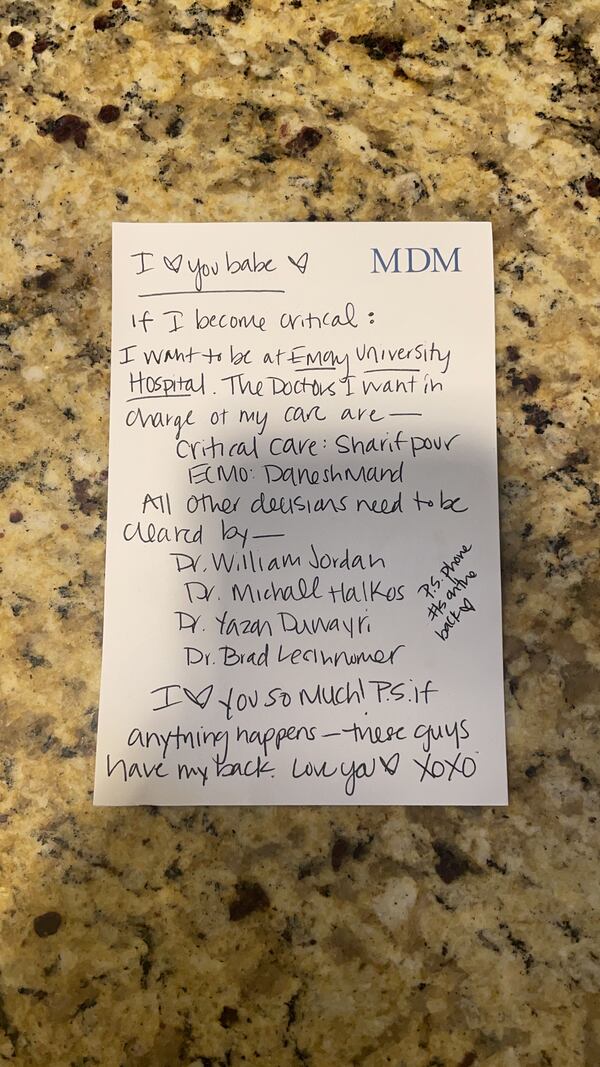 I ♡ you babe ♡
MDM
If I become critical:
I want to be at Emory University
Hospital. The Doctors I want in
charge of my care are —
Critical Care: Sharifpour
ECMO: Daneshmand
All other decisions need to be
cleared by —
Dr. William Jordan
Dr. Michael Halkos
Dr. Yazan Duwayri
Dr. Brad
P.S. phone
#s on the
back ♡
I ♡ you so much! P.S. if
anything happens — these guys
have my back. Love you ♡ XOXO